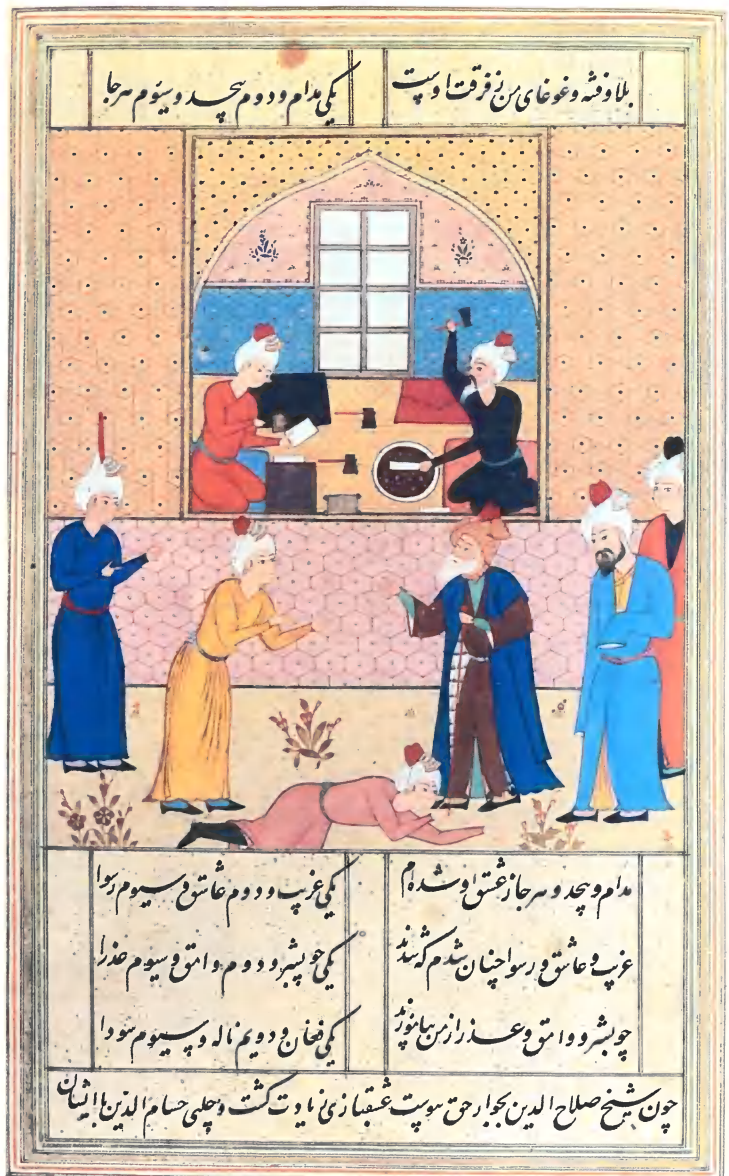 بلا و فتنه و غوغای من ز فرقت اوست یکی مدام و دوم بیحد و سیوم هرجا
مدام و بیحد و هرجا ز عشق او شده‌ام یکی غریب و دوم عاشق و سیوم رسوا
غریب و عاشق و رسوا چنان شدم که شدند یکی چو بشر و دوم وامق و سیوم عذرا
چو بشر و وامق و عذرا ز من بیاموزند یکی فغان و دویم ناله و سیوم سودا
چون شیخ صلاح الدین بجوار حق پیوست عشقبازی زیادت گشت و چلبی حسام الدین با ایشان